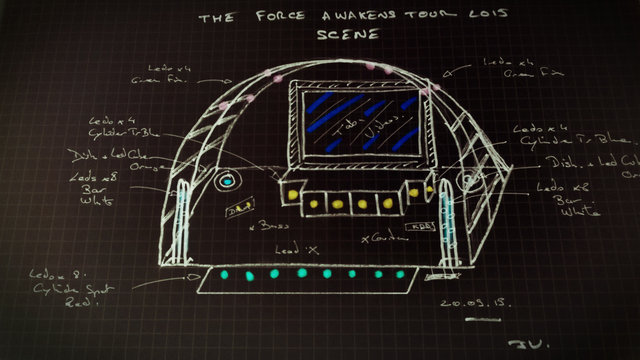 THE FORCE AWAKENS TOUR 2015
SCENE
Leds x4
Green Fix.
Leds x4
Green Fix
Leds x 4
Cylinder Tr. Blue
Dish + Led Cube
Orange
Leds x8
Bar
White
Tab
Videos.
Leds x4
Cylinde Tr. Blue.
Dish. + Led Cube
Orange
Leds x8
Bar
White
x Bass
Lead . x
Leds x 8.
Cylinde Spot
Red.
20.09.15.
JV.